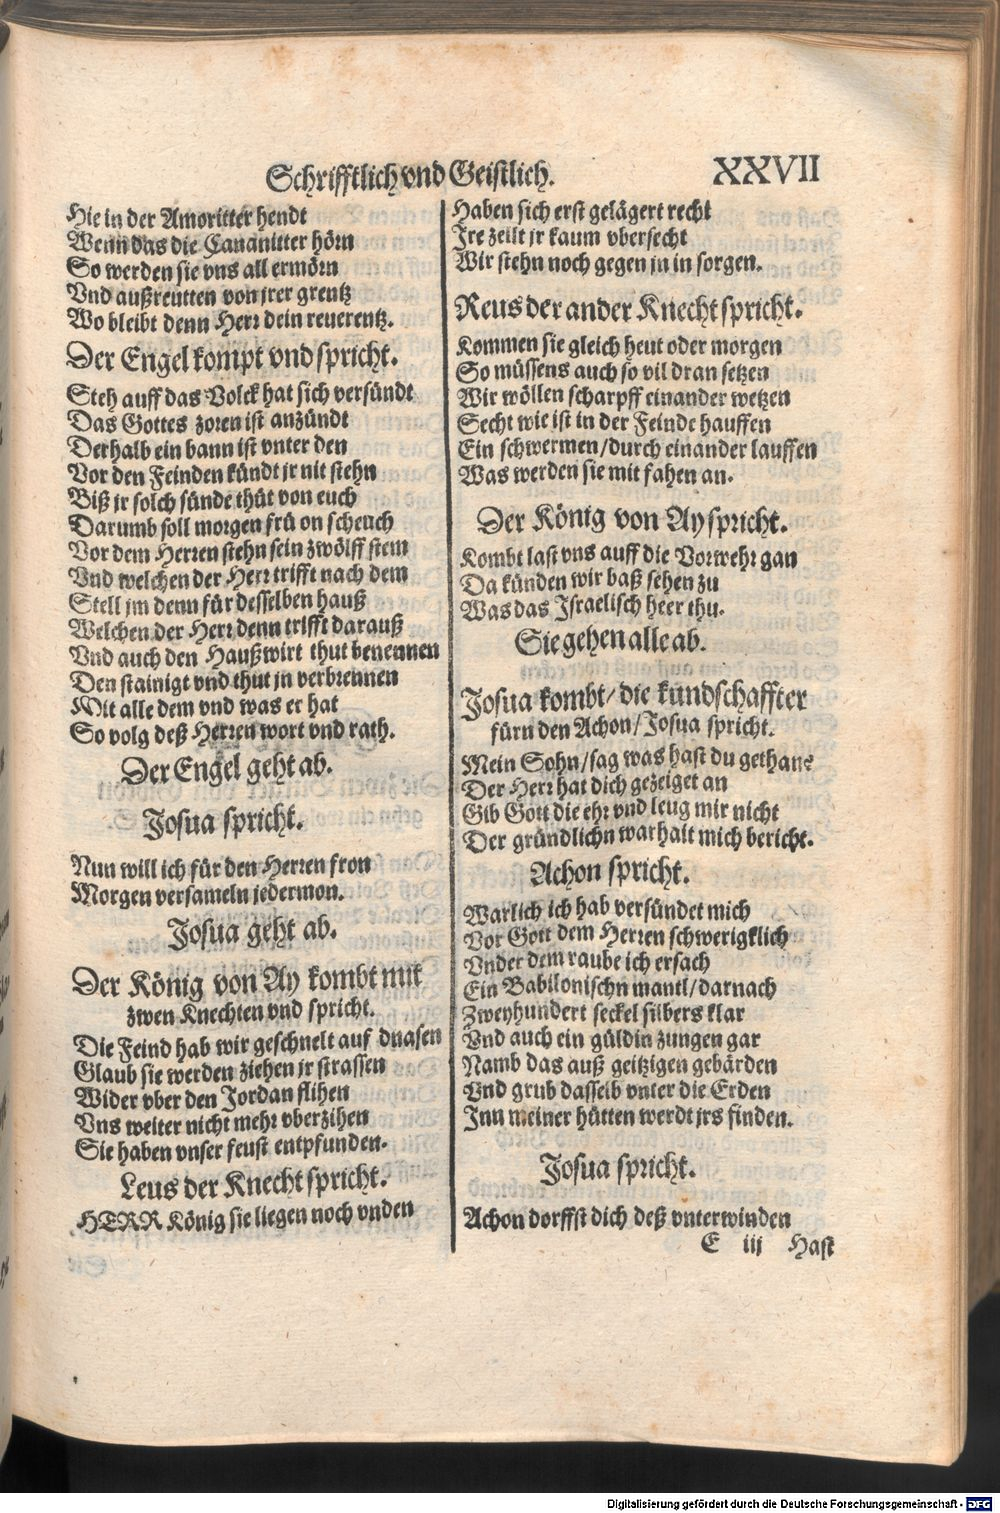 Schrifftlich vnd Geistlich. XXVII
Hie in der Amoritter hendt
Wenn das die Cananitter hörn
So werden sie vns all ermörn
Vnd außreutten von jrer grentz
Wo bleibt denn Herr dein reuerentz.
Der Engel kompt vnd spricht.
Steh auff das Volck hat sich versündt
Das Gottes zoren ist anzündt
Derhalb ein bann ist vnter den
Vor den Feinden kündt jr nit stehn
Biß jr solch sünde thüt von euch
Darumb soll morgen frü on scheuch
Vor dem Herren stehn sein zwölff stem
Vnd welchen der Herr trifft nach dem
Stell jm denn für desselben hauß
Welchen der Herr denn trifft darauß
Vnd auch den Haußwirt thut benennen
Den stainigt vnd thut jn verbrennen
Mit alle dem vnd was er hat
So volg deß Herren wort vnd rath.
Der Engel geht ab.
Josua spricht.
Nun will ich für den Herren fron
Morgen versameln jedermon.
Josua geht ab.
Der König von Ay kombt mit
zwen Knechten vnd spricht.
Die Feind hab wir geschnelt auf dnasen
Glaub sie werden ziehen jr strassen
Wider vber den Jordan flihen
Vns weiter nicht mehr vberzihen
Sie haben vnser feust entpfunden.
Leus der Knecht spricht.
HERR König sie liegen noch vnden
Haben sich erst gelägert recht
Ire zeilt jr kaum vbersecht
Wir stehn noch gegen jn in sorgen.
Reus der ander Knecht spricht.
Kommen sie gleich heut oder morgen
So müssens auch so vil dran setzen
Wir wöllen scharpff einander wetzen
Secht wie ist in der Feinde hauffen
Ein schwermen/durch einander lauffen
Was werden sie mit fahen an.
Der König von Ay spricht.
Kombt last vns auff die Vorwehr gan
Da künden wir baß sehen zu
Was das Israelisch heer thu.
Sie gehen alle ab.
Josua kombt/die kundschaffter
fürn den Achon/Josua spricht.
Mein Sohn/sag was hast du gethane
Der Herr hat dich gezeiget an
Gib Gott die ehr vnd leug mir nicht
Der gründlichn warhait mich bericht.
Achon spricht.
Warlich ich hab versündet mich
Vor Gott dem Herren schwerigklich
Vnder dem raube ich ersach
Ein Babilonischn mantl/darnach
Zweyhundert seckel silbers klar
Vnd auch ein güldin zungen gar
Namb das auß geitzigen gebärden
Vnd grub dasselb vnter die Erden
Inn meiner hütten werdt jrs finden.
Josua spricht.
Achon dorffst dich deß vnterwinden
E iij Hast
Digitalisierung gefördert durch die Deutsche Forschungsgemeinschaft - DFG